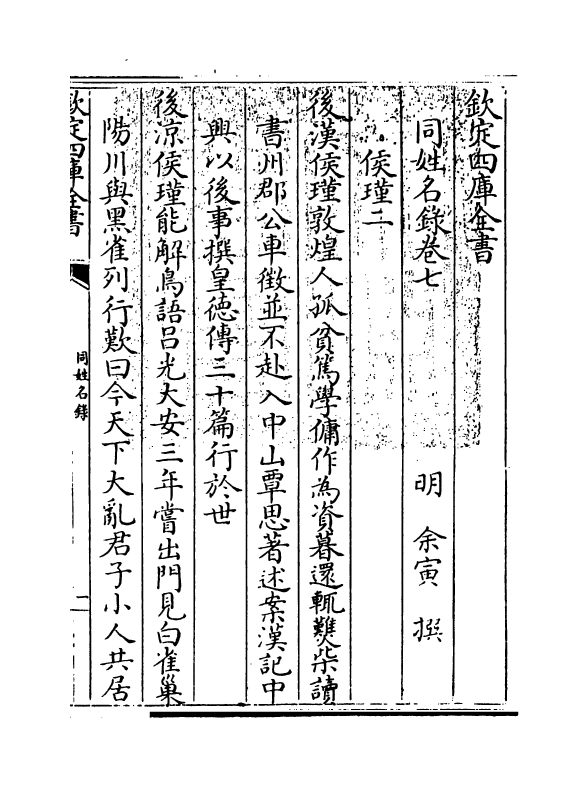 欽定四庫全書
同姓名錄卷七
明 余寅 撰
侯瑾二
後漢侯瑾敦煌人孤貧篤學傭作為資暮還輒㸐柴讀
書州郡公車徵並不赴入中山覃思著述案漢記中
興以後事撰皇徳傳三十篇行於世
後涼侯瑾能解鳥語吕光大安三年嘗出門見白雀巢
陽川與黒雀列行歎曰今天下大亂君子小人共居
欽定四庫全書
同姓名錄